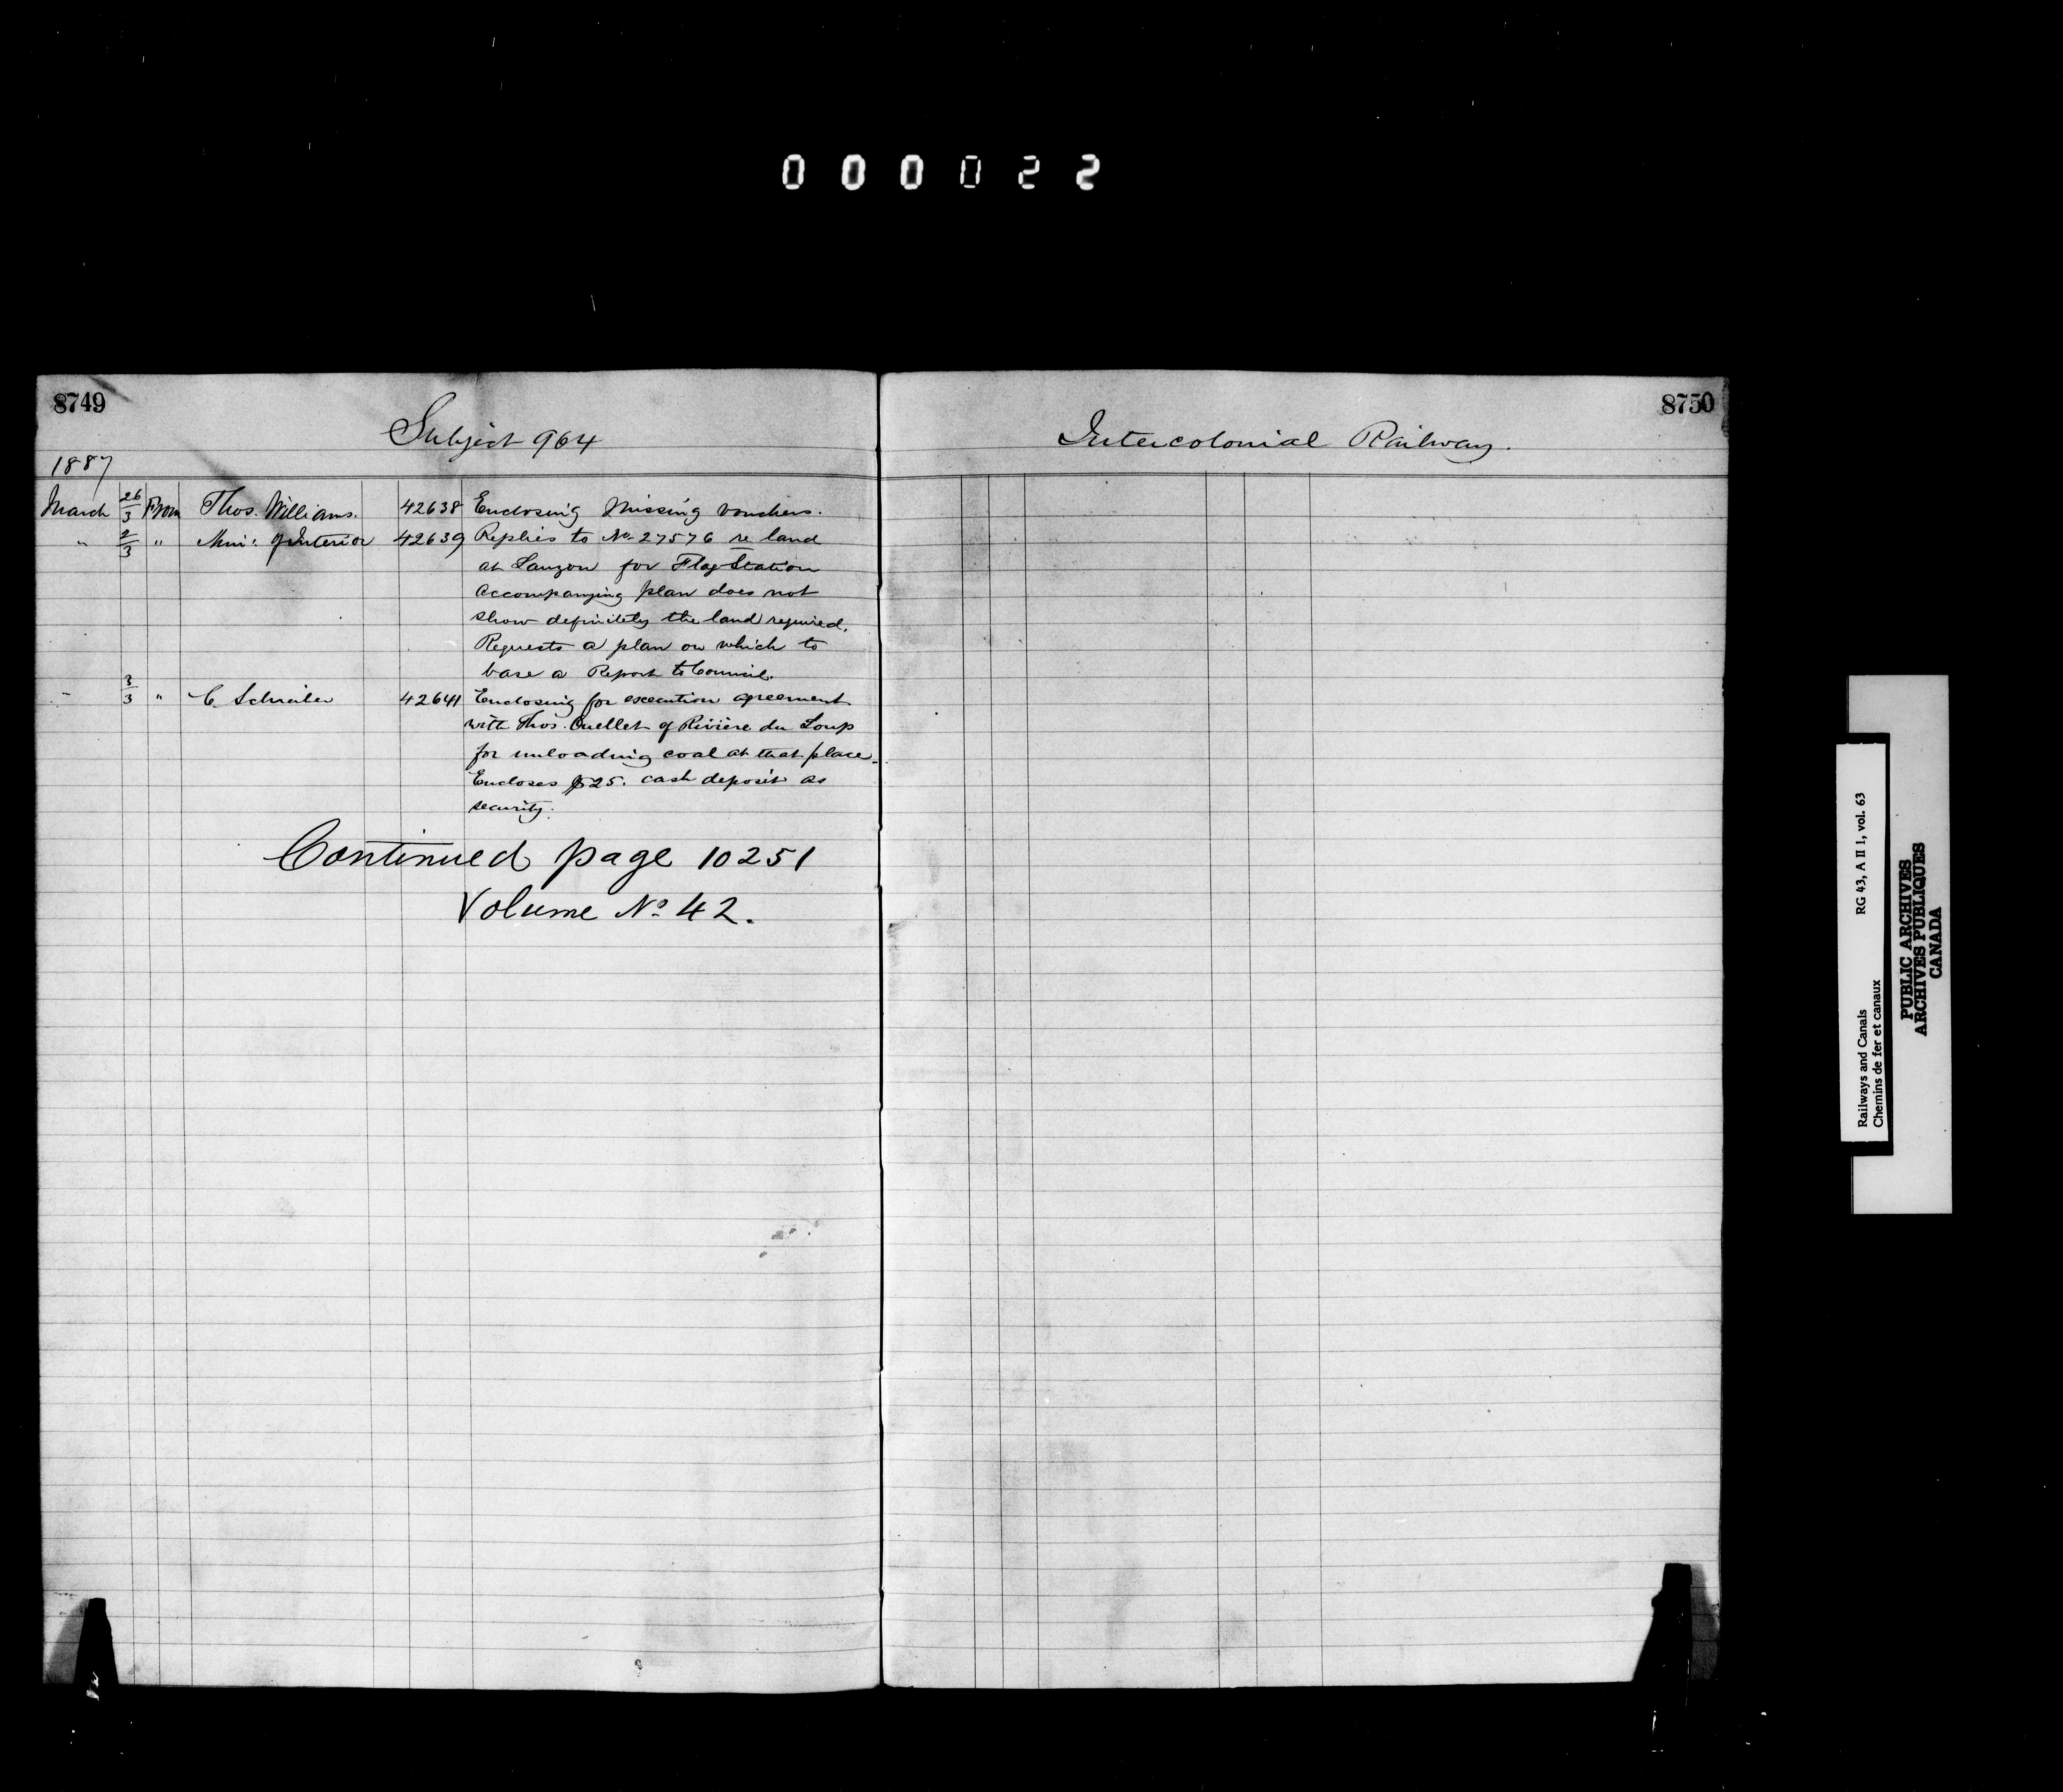 000022
8749
Subject 964
1887
March 26/3 From Thos. Williams. 42638 Enclosing Missing vouchers.
" 2/3 " Min: of Interior 42639 Replies to No 27576 re land
at Lauzon for Flag Station
Accompanying plan does not
show definitely the land required.
Requests a plan on which to
base a Report to Council.
" 3/3 " C. Schreiber 42641 Enclosing for execution agreement
with Thos. Ouellet of Rivière du Loup
for unloading coal at that place.
Encloses $25. cash deposit as
security.
Continued page 10251
Volume No 42.
8750
Intercolonial Railway.
Railways and Canals RG 43, A II 1, vol. 63
Chemins de fer et canaux
PUBLIC ARCHIVES
ARCHIVES PUBLIQUES
CANADA